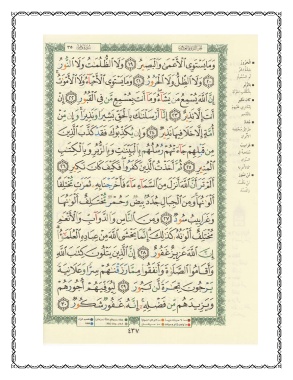 وَمَا يَسْتَوِى ٱلْأَعْمَىٰ وَٱلْبَصِيرُ ﴿١٩﴾ وَلَا ٱلظُّلُمَٰتُ وَلَا ٱلنُّورُ
﴿٢٠﴾ وَلَا ٱلظِّلُّ وَلَا ٱلْحَرُورُ ﴿٢١﴾ وَمَا يَسْتَوِى ٱلْأَحْيَآءُ وَلَا ٱلْأَمْوَٰتُ
إِنَّ ٱللَّهَ يُسْمِعُ مَن يَشَآءُ وَمَآ أَنتَ بِمُسْمِعٍ مَّن فِى ٱلْقُبُورِ ﴿٢٢﴾ إِنْ
أَنتَ إِلَّا نَذِيرٌ ﴿٢٣﴾ إِنَّآ أَرْسَلْنَٰكَ بِٱلْحَقِّ بَشِيرًا وَنَذِيرًا وَإِن مِّنْ
أُمَّةٍ إِلَّا خَلَا فِيهَا نَذِيرٌ ﴿٢٤﴾ وَإِن يُكَذِّبُوكَ فَقَدْ كَذَّبَ ٱلَّذِينَ
مِن قَبْلِهِمْ جَآءَتْهُمْ رُسُلُهُم بِٱلْبَيِّنَٰتِ وَبِٱلزُّبُرِ وَبِٱلْكِتَٰبِ
ٱلْمُنِيرِ ﴿٢٥﴾ ثُمَّ أَخَذْتُ ٱلَّذِينَ كَفَرُوا۟ فَكَيْفَ كَانَ نَكِيرِ ﴿٢٦﴾
أَلَمْ تَرَ أَنَّ ٱللَّهَ أَنزَلَ مِنَ ٱلسَّمَآءِ مَآءً فَأَخْرَجْنَا بِهِۦ ثَمَرَٰتٍ مُّخْتَلِفًا
أَلْوَٰنُهَا وَمِنَ ٱلْجِبَالِ جُدَدٌۢ بِيضٌ وَحُمْرٌ مُّخْتَلِفٌ أَلْوَٰنُهَا
وَغَرَابِيبُ سُودٌ ﴿٢٧﴾ وَمِنَ ٱلنَّاسِ وَٱلدَّوَآبِّ وَٱلْأَنْعَٰمِ
مُخْتَلِفٌ أَلْوَٰنُهُۥ كَذَٰلِكَ إِنَّمَا يَخْشَى ٱللَّهَ مِنْ عِبَادِهِ ٱلْعُلَمَٰٓؤُا۟
إِنَّ ٱللَّهَ عَزِيزٌ غَفُورٌ ﴿٢٨﴾ إِنَّ ٱلَّذِينَ يَتْلُونَ كِتَٰبَ ٱللَّهِ
وَأَقَامُوا۟ ٱلصَّلَوٰةَ وَأَنفَقُوا۟ مِمَّا رَزَقْنَٰهُمْ سِرًّا وَعَلَانِيَةً
يَرْجُونَ تِجَٰرَةً لَّن تَبُورَ ﴿٢٩﴾ لِيُوَفِّيَهُمْ أُجُورَهُمْ
وَيَزِيدَهُم مِّن فَضْلِهِۦٓ إِنَّهُۥ غَفُورٌ شَكُورٌ ﴿٣٠﴾
٤٣٧